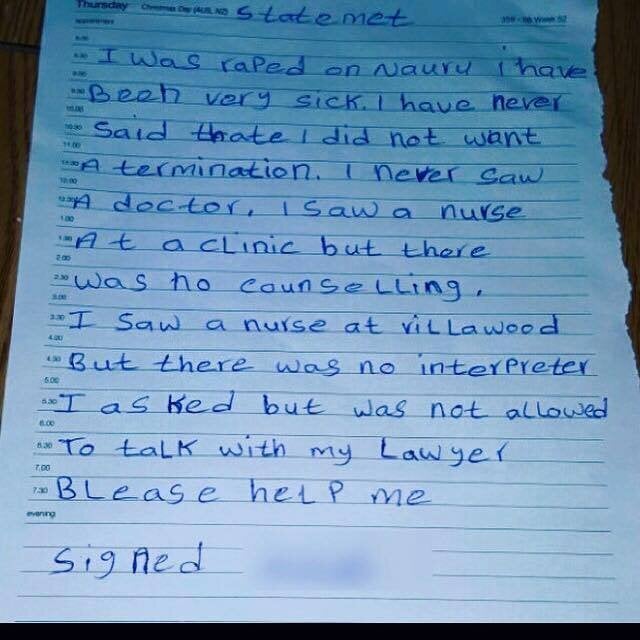 Thursday Christmas Day (AUS, NZ) Statemet 359 - 06 Week 52
appointments
8.00
8.30 I was raped on Nauru i have
9.00
9.30 Been very sick. I have never
10.00
10.30 Said thate I did not want
11.00
11.30 A termination. I never saw
12.00
12.30 A doctor. I saw a nurse
1.00
1.30 At a clinic but there
2.00
2.30 was no counselling.
3.00
3.30 I saw a nurse at villawood
4.00
4.30 But there was no interpreter
5.00
5.30 I asked but was not allowed
6.00
6.30 To talk with my Lawyer
7.00
7.30 BLease help me
evening
Signed